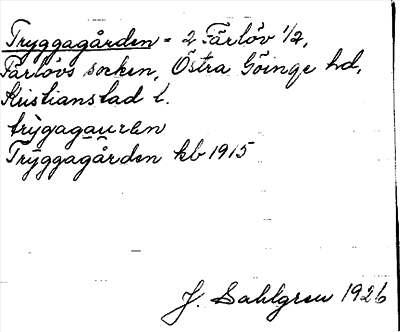 Tryggagården = 2 Färlöv 1/2,
Färlövs socken, Östra Göinge hd,
Kristianstad l.
trỳgagau̯rεn
Tryggagården kb 1915
J. Sahlgren 1926